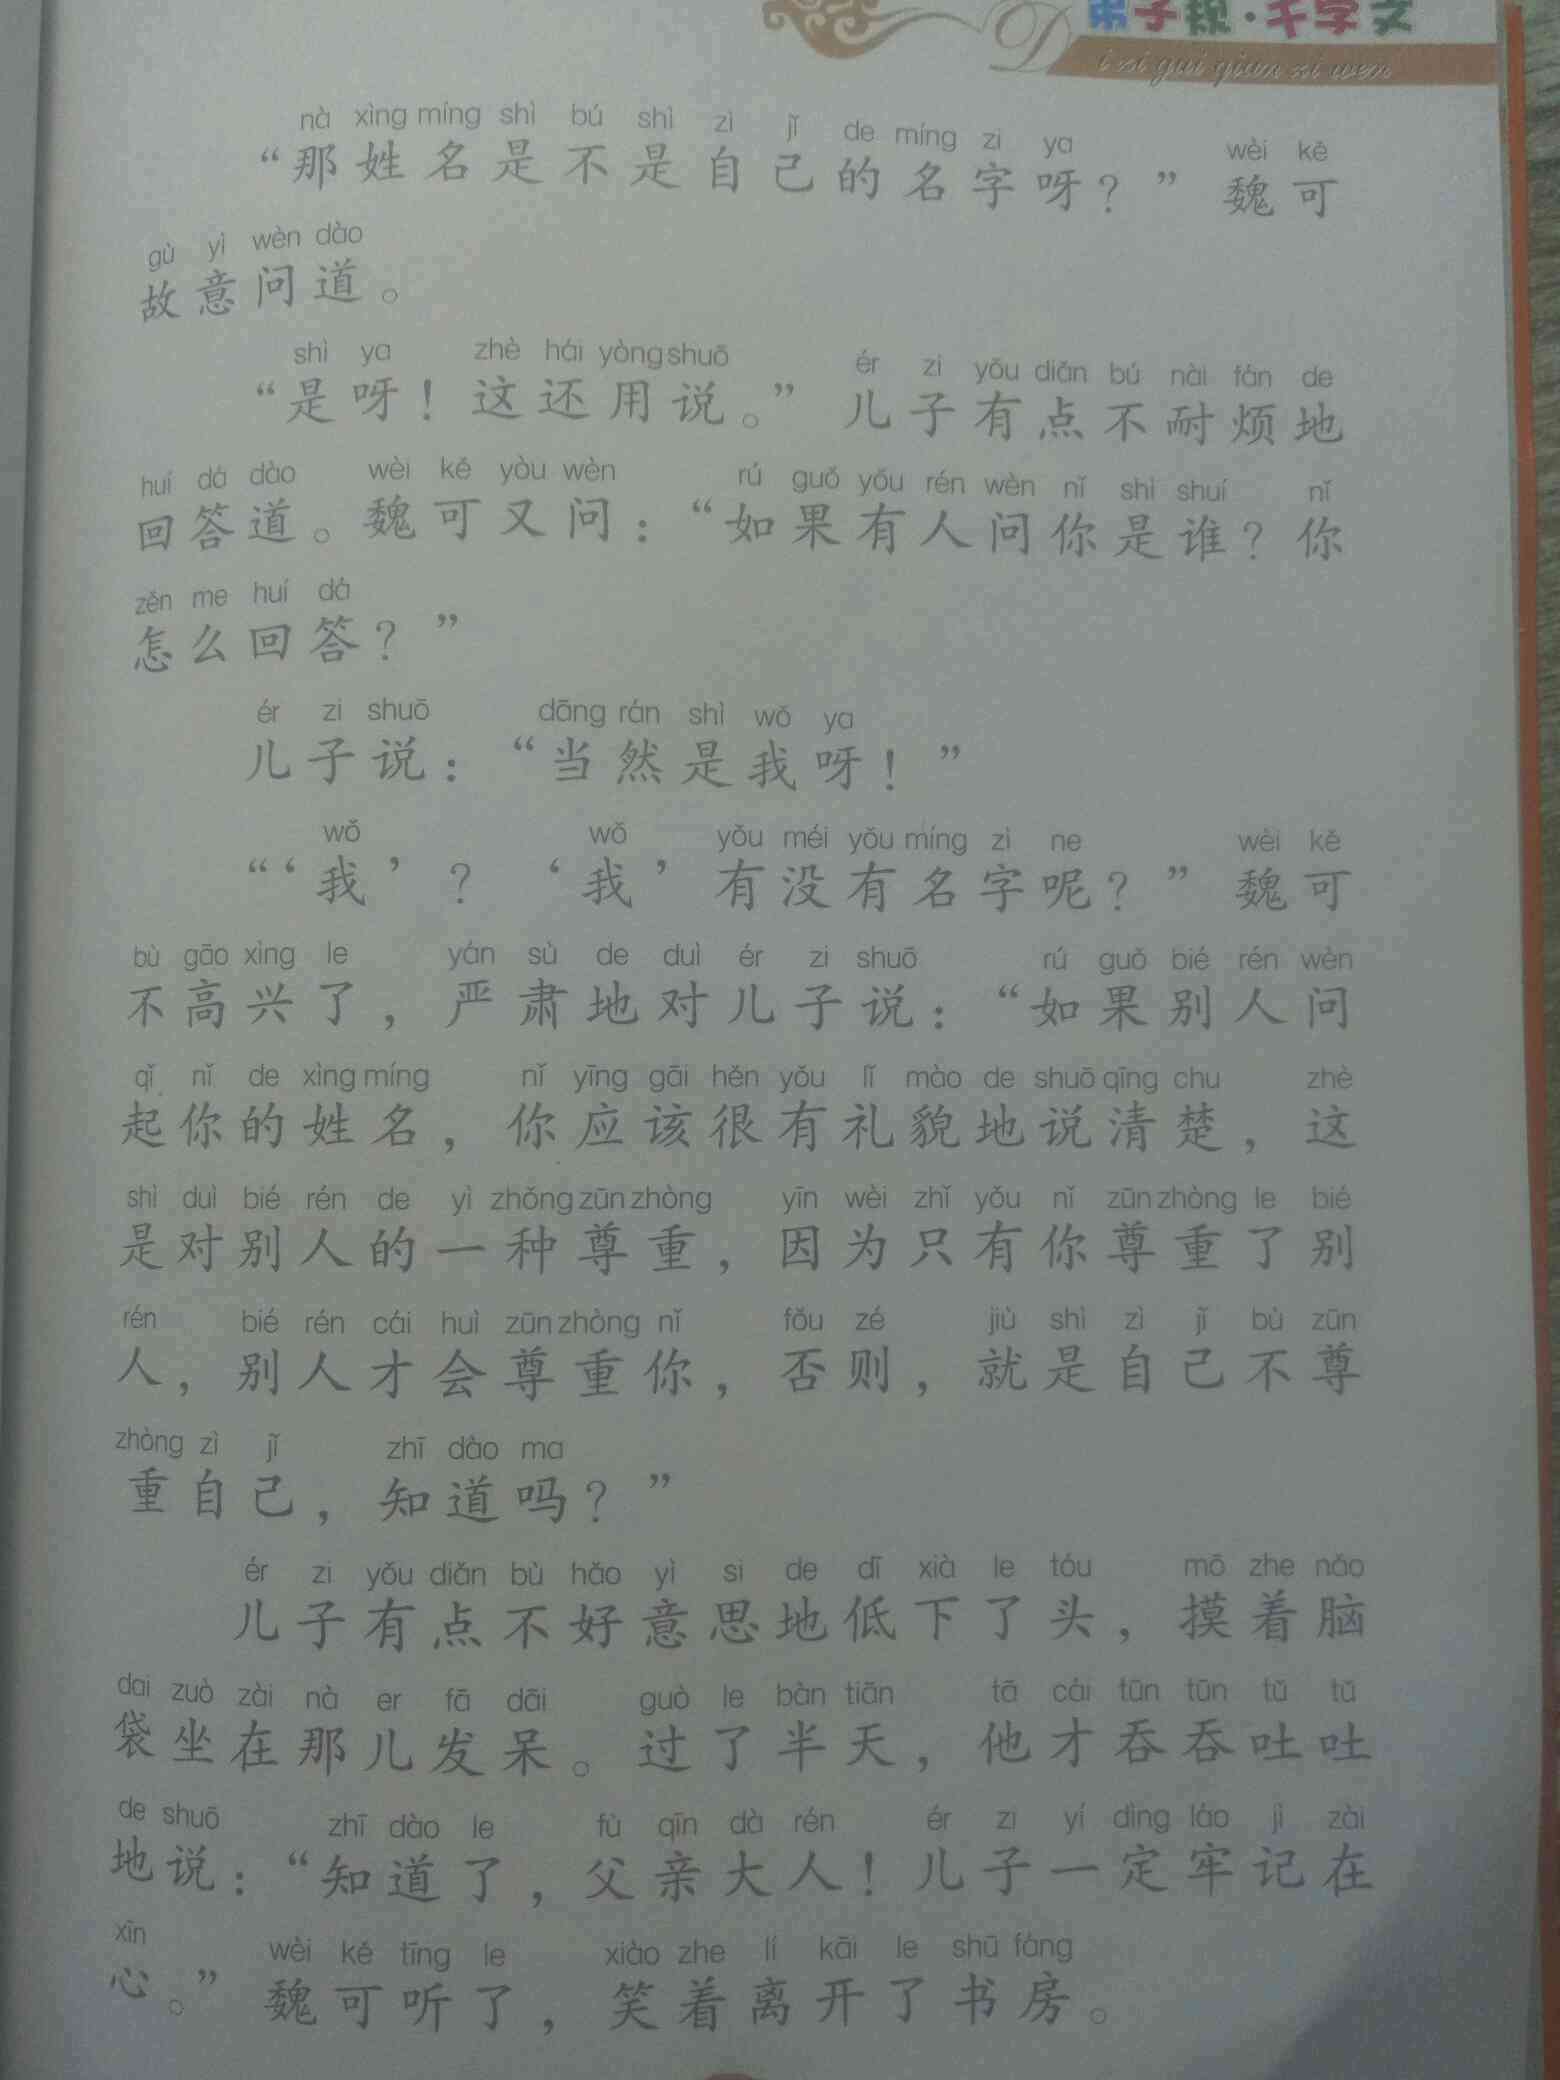 弟子规·千字文
Di zi gui qian zi wen
nà xìng míng shì bú shì zì jǐ de míng zi ya wèi kě
“那姓名是不是自己的名字呀？”魏可
gù yì wèn dào
故意问道。
shì ya zhè hái yòng shuō ér zi yǒu diǎn bú nài fán de
“是呀！这还用说。”儿子有点不耐烦地
huí dá dào wèi kě yòu wèn rú guǒ yǒu rén wèn nǐ shì shuí nǐ
回答道。魏可又问：“如果有人问你是谁？你
zěn me huí dá
怎么回答？”
ér zi shuō dāng rán shì wǒ ya
儿子说：“当然是我呀！”
wǒ wǒ yǒu méi yǒu míng zì ne wèi kě
“‘我’？‘我’有没有名字呢？”魏可
bù gāo xìng le yán sù de duì ér zi shuō rú guǒ bié rén wèn
不高兴了，严肃地对儿子说：“如果别人问
qǐ nǐ de xìng míng nǐ yīng gāi hěn yǒu lǐ mào de shuō qīng chu zhè
起你的姓名，你应该很有礼貌地说清楚，这
shì duì bié rén de yì zhǒng zūn zhòng yīn wèi zhǐ yǒu nǐ zūn zhòng le bié
是对别人的一种尊重，因为只有你尊重了别
rén bié rén cái huì zūn zhòng nǐ fǒu zé jiù shì zì jǐ bù zūn
人，别人才会尊重你，否则，就是自己不尊
zhòng zì jǐ zhī dào ma
重自己，知道吗？”
ér zi yǒu diǎn bù hǎo yì si de dī xià le tóu mō zhe nǎo
儿子有点不好意思地低下了头，摸着脑
dai zuò zài nà er fā dāi guò le bàn tiān tā cái tūn tūn tǔ tǔ
袋坐在那儿发呆。过了半天，他才吞吞吐吐
de shuō zhī dào le fù qīn dà rén ér zi yí dìng láo jì zài
地说：“知道了，父亲大人！儿子一定牢记在
xīn wèi kě tīng le xiào zhe lí kāi le shū fáng
心。”魏可听了，笑着离开了书房。